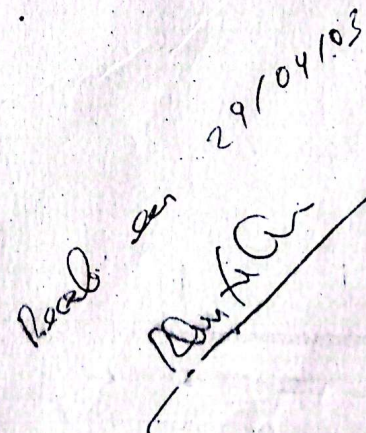 Recebi em 29/04/03